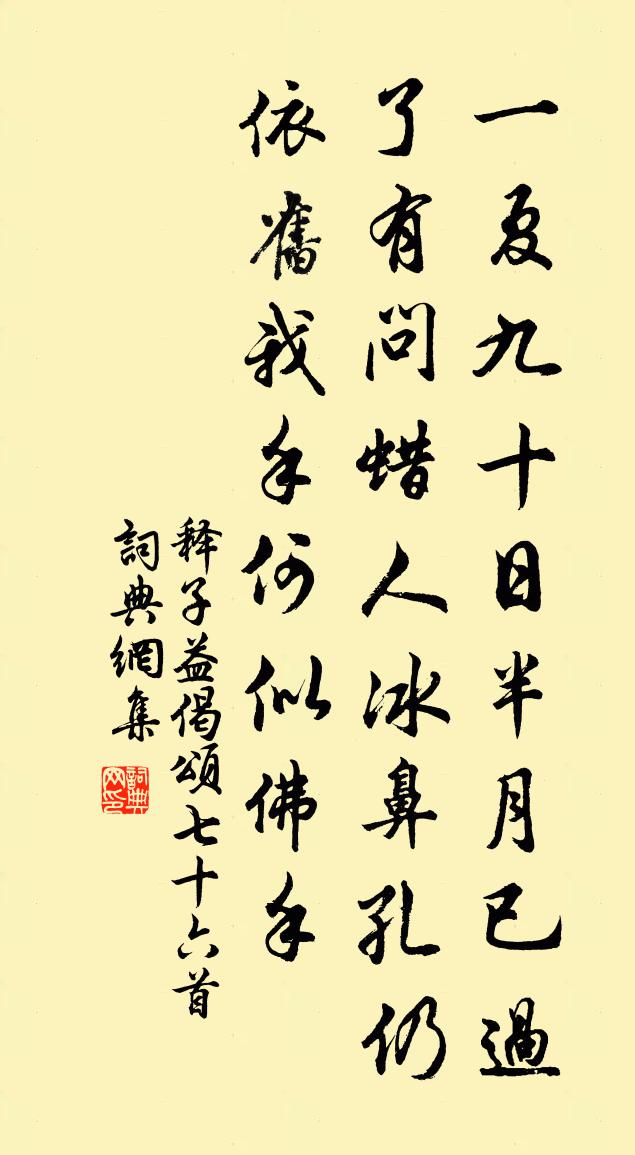 一夏九十日半月已過
了有問蜡人冰鼻孔仍
依舊我手何似佛手
释子益偈頌七十六首
詞典網集
詞典网印